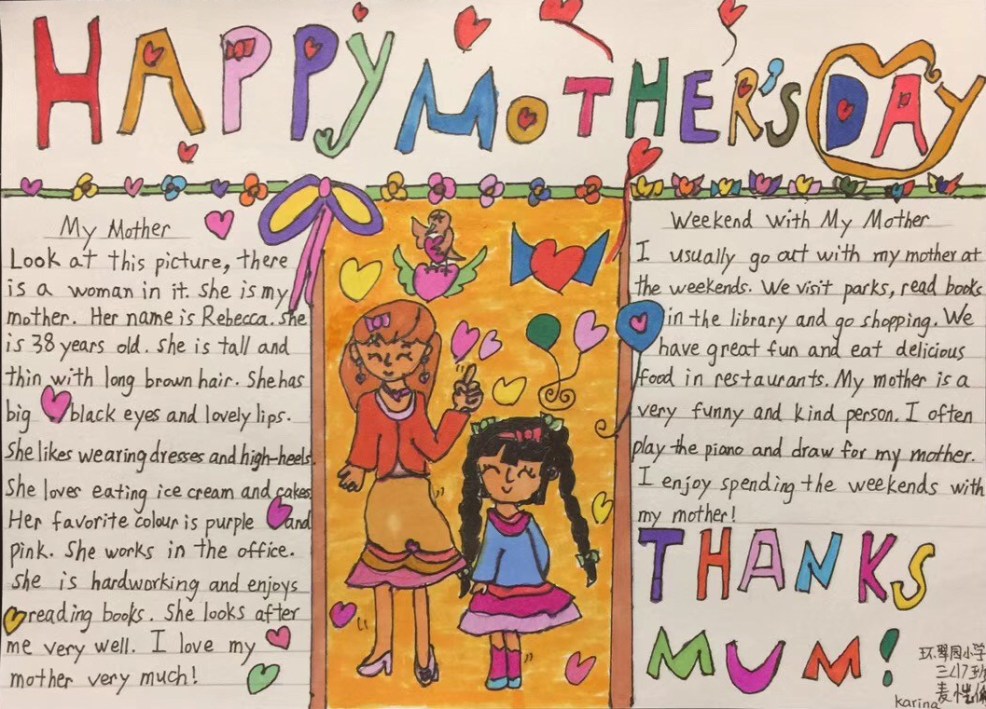 HAPPY MOTHER'S DAY
My Mother
Look at this picture, there
is a woman in it. She is my
mother. Her name is Rebecca. She
is 38 years old. She is tall and
thin with long brown hair. She has
big black eyes and lovely lips.
She likes wearing dresses and high-heels.
She loves eating ice cream and cakes.
Her favorite colour is purple and
pink. She works in the office.
She is hardworking and enjoys
reading books. She looks after
me very well. I love my
mother very much!
Weekend With My Mother
I usually go out with my mother at
the weekends. We visit parks, read books
in the library and go shopping. We
have great fun and eat delicious
food in restaurants. My mother is a
very funny and kind person. I often
play the piano and draw for my mother.
I enjoy spending the weekends with
my mother!
THANKS
MUM!
环翠园小学
三(7)班
karina